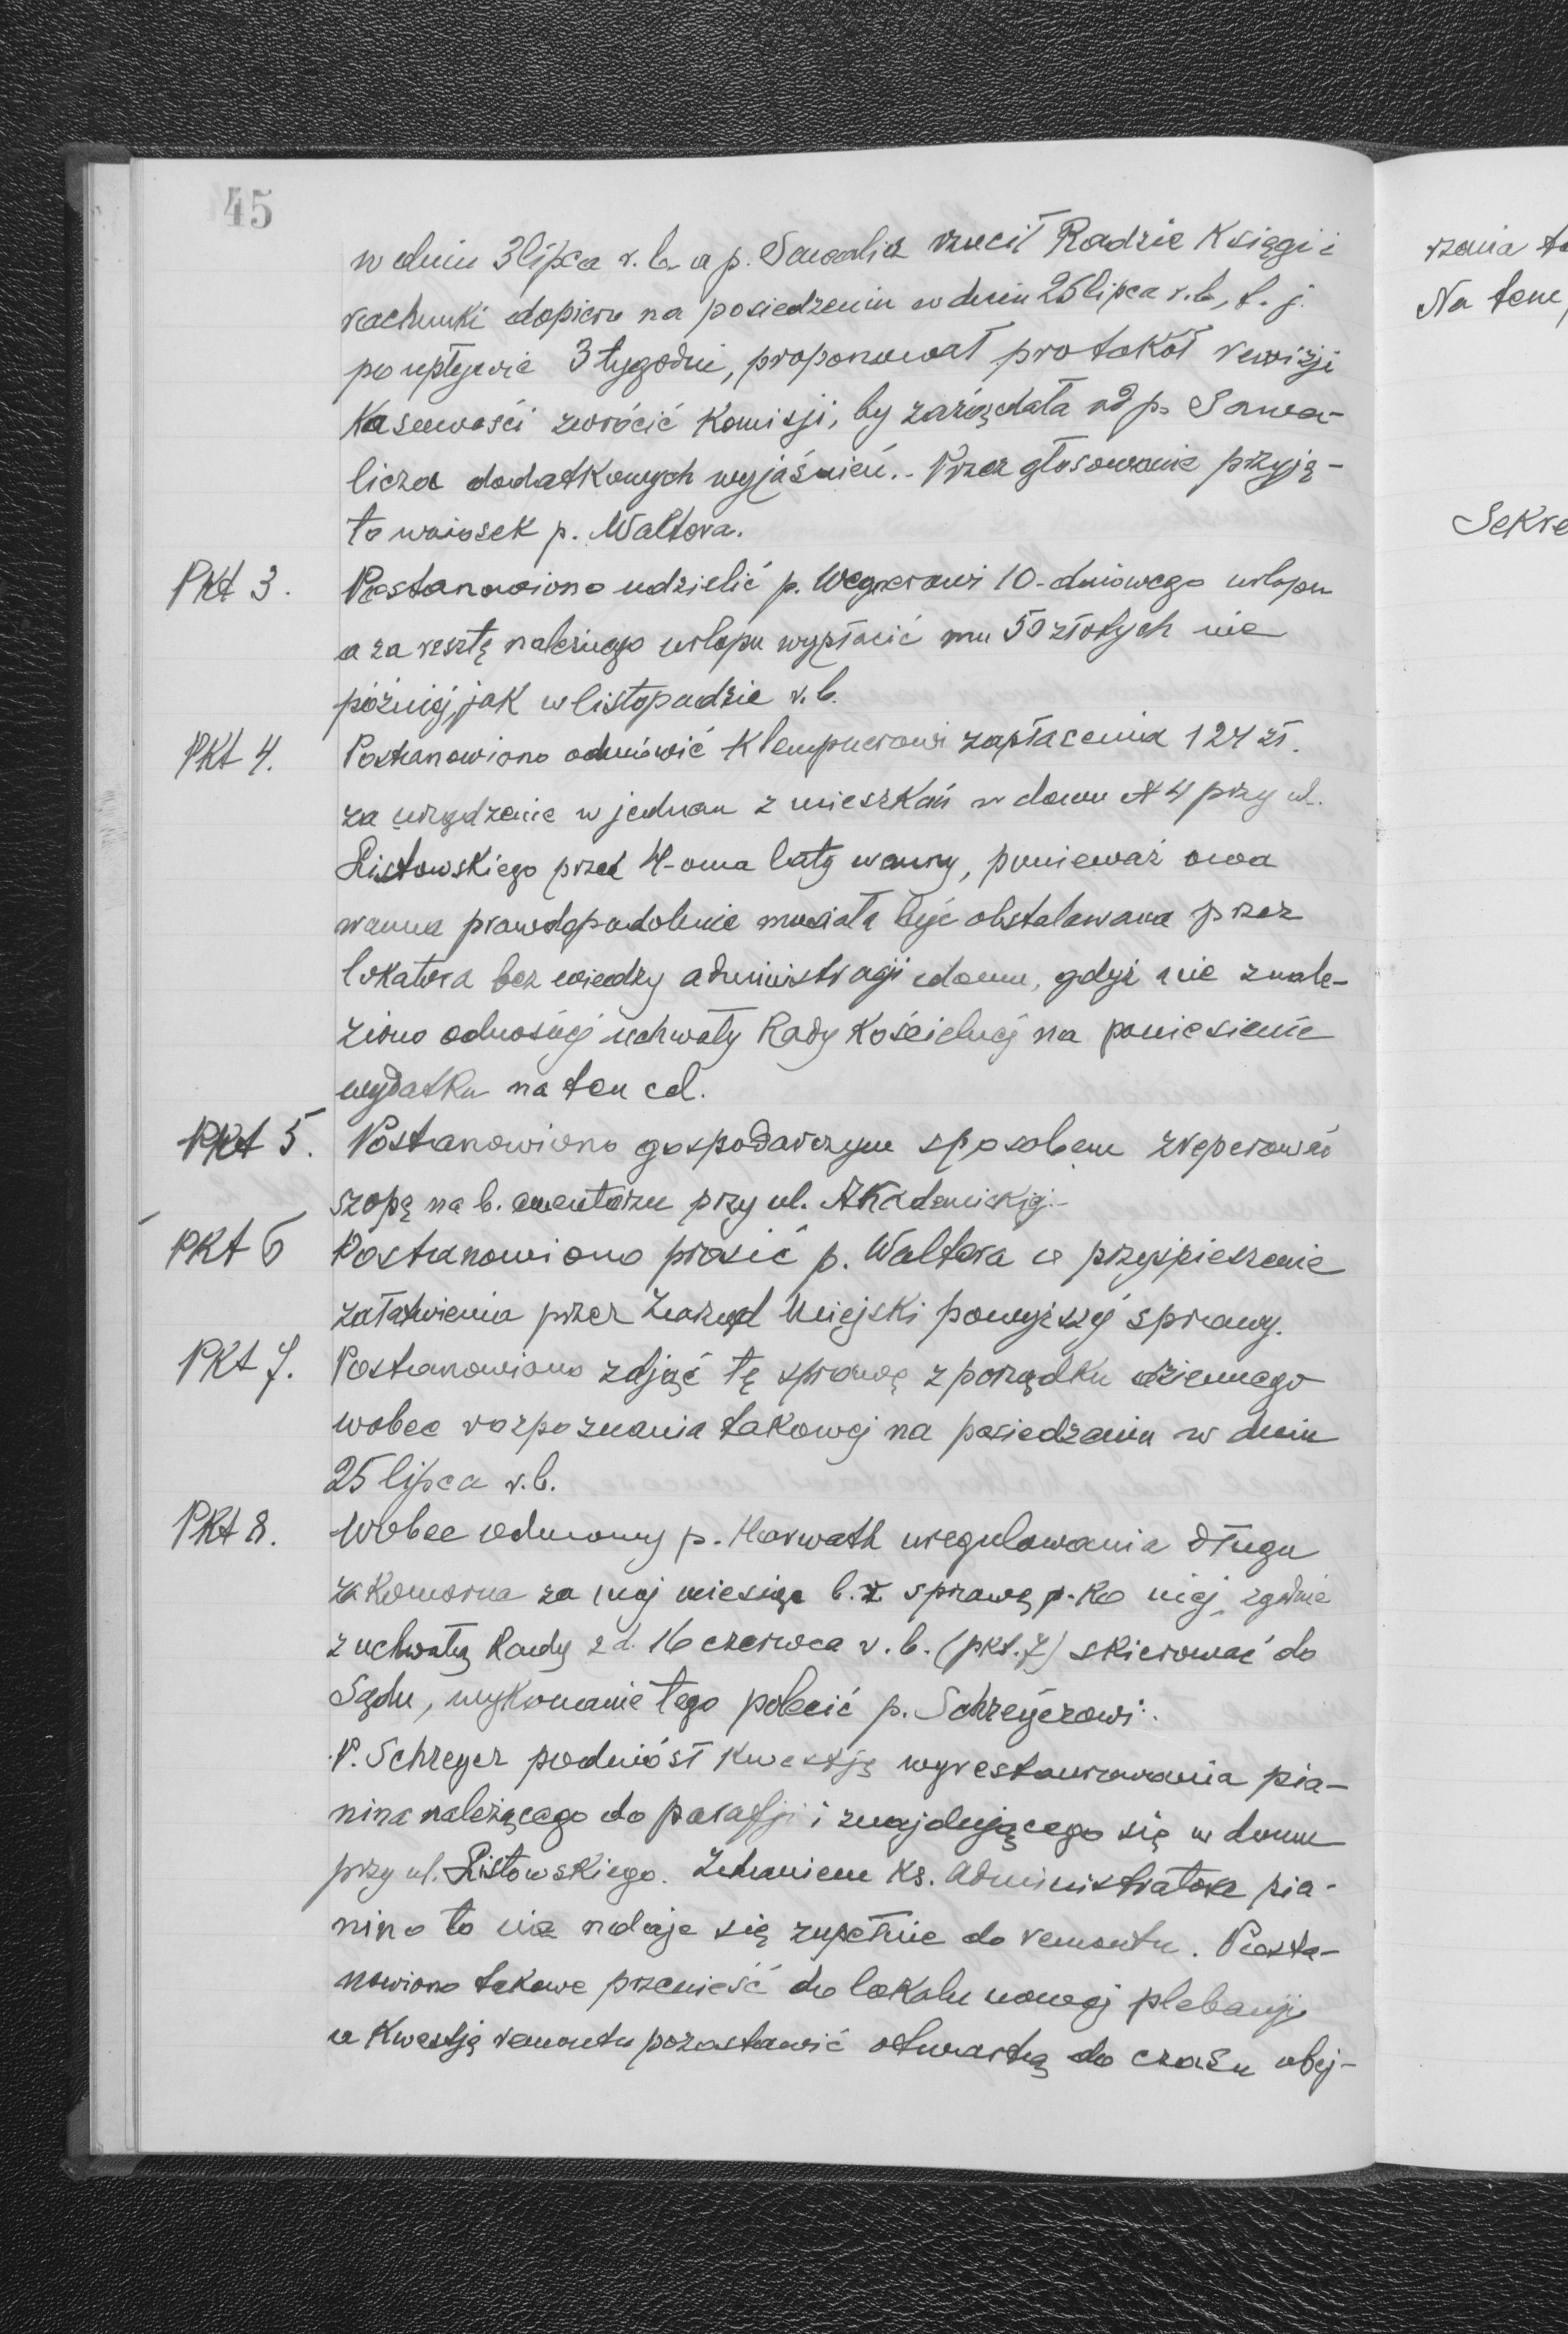 45
w dniu 3 lipca r.b. a p. Sawalicz rzucił Radzie Księgi i
rachunki dopiero na posiedzeniu w dniu 25 lipca r.b., t.j.
po upływie 3 tygodni, proponował protokół rewizji
Kasowości zwrócić Komisji, by zażądała od p. Sawa-
licza dodatkowych wyjaśnień.. Przez głosowanie przyję-
to wniosek p. Waltera.
PKt 3. Postanowiono udzielić p. Wegnerowi 10-dniowego urlopu
a za resztę należnego urlopu wypłacić mu 50 złotych nie
później, jak w listopadzie r.b.
PKt 4. Postanowiono odmówić Klempnerowi zapłacenia 124 zł.
za urządzenie w jednem z mieszkań w domu N 4 przy ul.
Listowskiego przed 4-oma laty wanny, ponieważ owa
wanna prawdopodobnie musiała być obstalowana przez
lokatora bez wiedzy administracji domu, gdyż nie znale-
ziono odnośnej uchwały Rady Kościelnej na poniesienie
wydatku na ten cel.
PKt 5. Postanowiono gospodarczym sposobem zreperować
szopę na b. cmentarzu przy ul. Akademickiej.-
PKt 6 Postanowiono prosić p. Waltera o przyśpieszenie
załatwienia przez Zarząd Miejski powyższej sprawy.
PKt 7. Postanowiono zdjąć tę sprawę z porządku dziennego
wobec rozpoznania takowej na posiedzeniu w dniu
25 lipca r.b.
PKt 8. Wobec odmowy p. Horwath uregulowania długu
za Komorne za maj miesiąc b.r. sprawę p-ko niej, zgodnie
z uchwałą Rady z d. 16 czerwca r.b. (pkt. 7) skierować do
Sądu, wykonanie tego polecić p. Schreyerowi.
P. Schreyer podniósł kwestję wyrestaurowania pia-
nina należącego do parafji i znajdującego się w domu
przy ul. Listowskiego. Zdaniem Ks. Administratora pia-
nino to nie nadaje się zupełnie do remontu. Posta-
nowiono takowe przenieść do lokalu nowej plebanji
a Kwestję remontu pozostawić otwartą do czasu obej-
rzenia
Na tem
Sekre